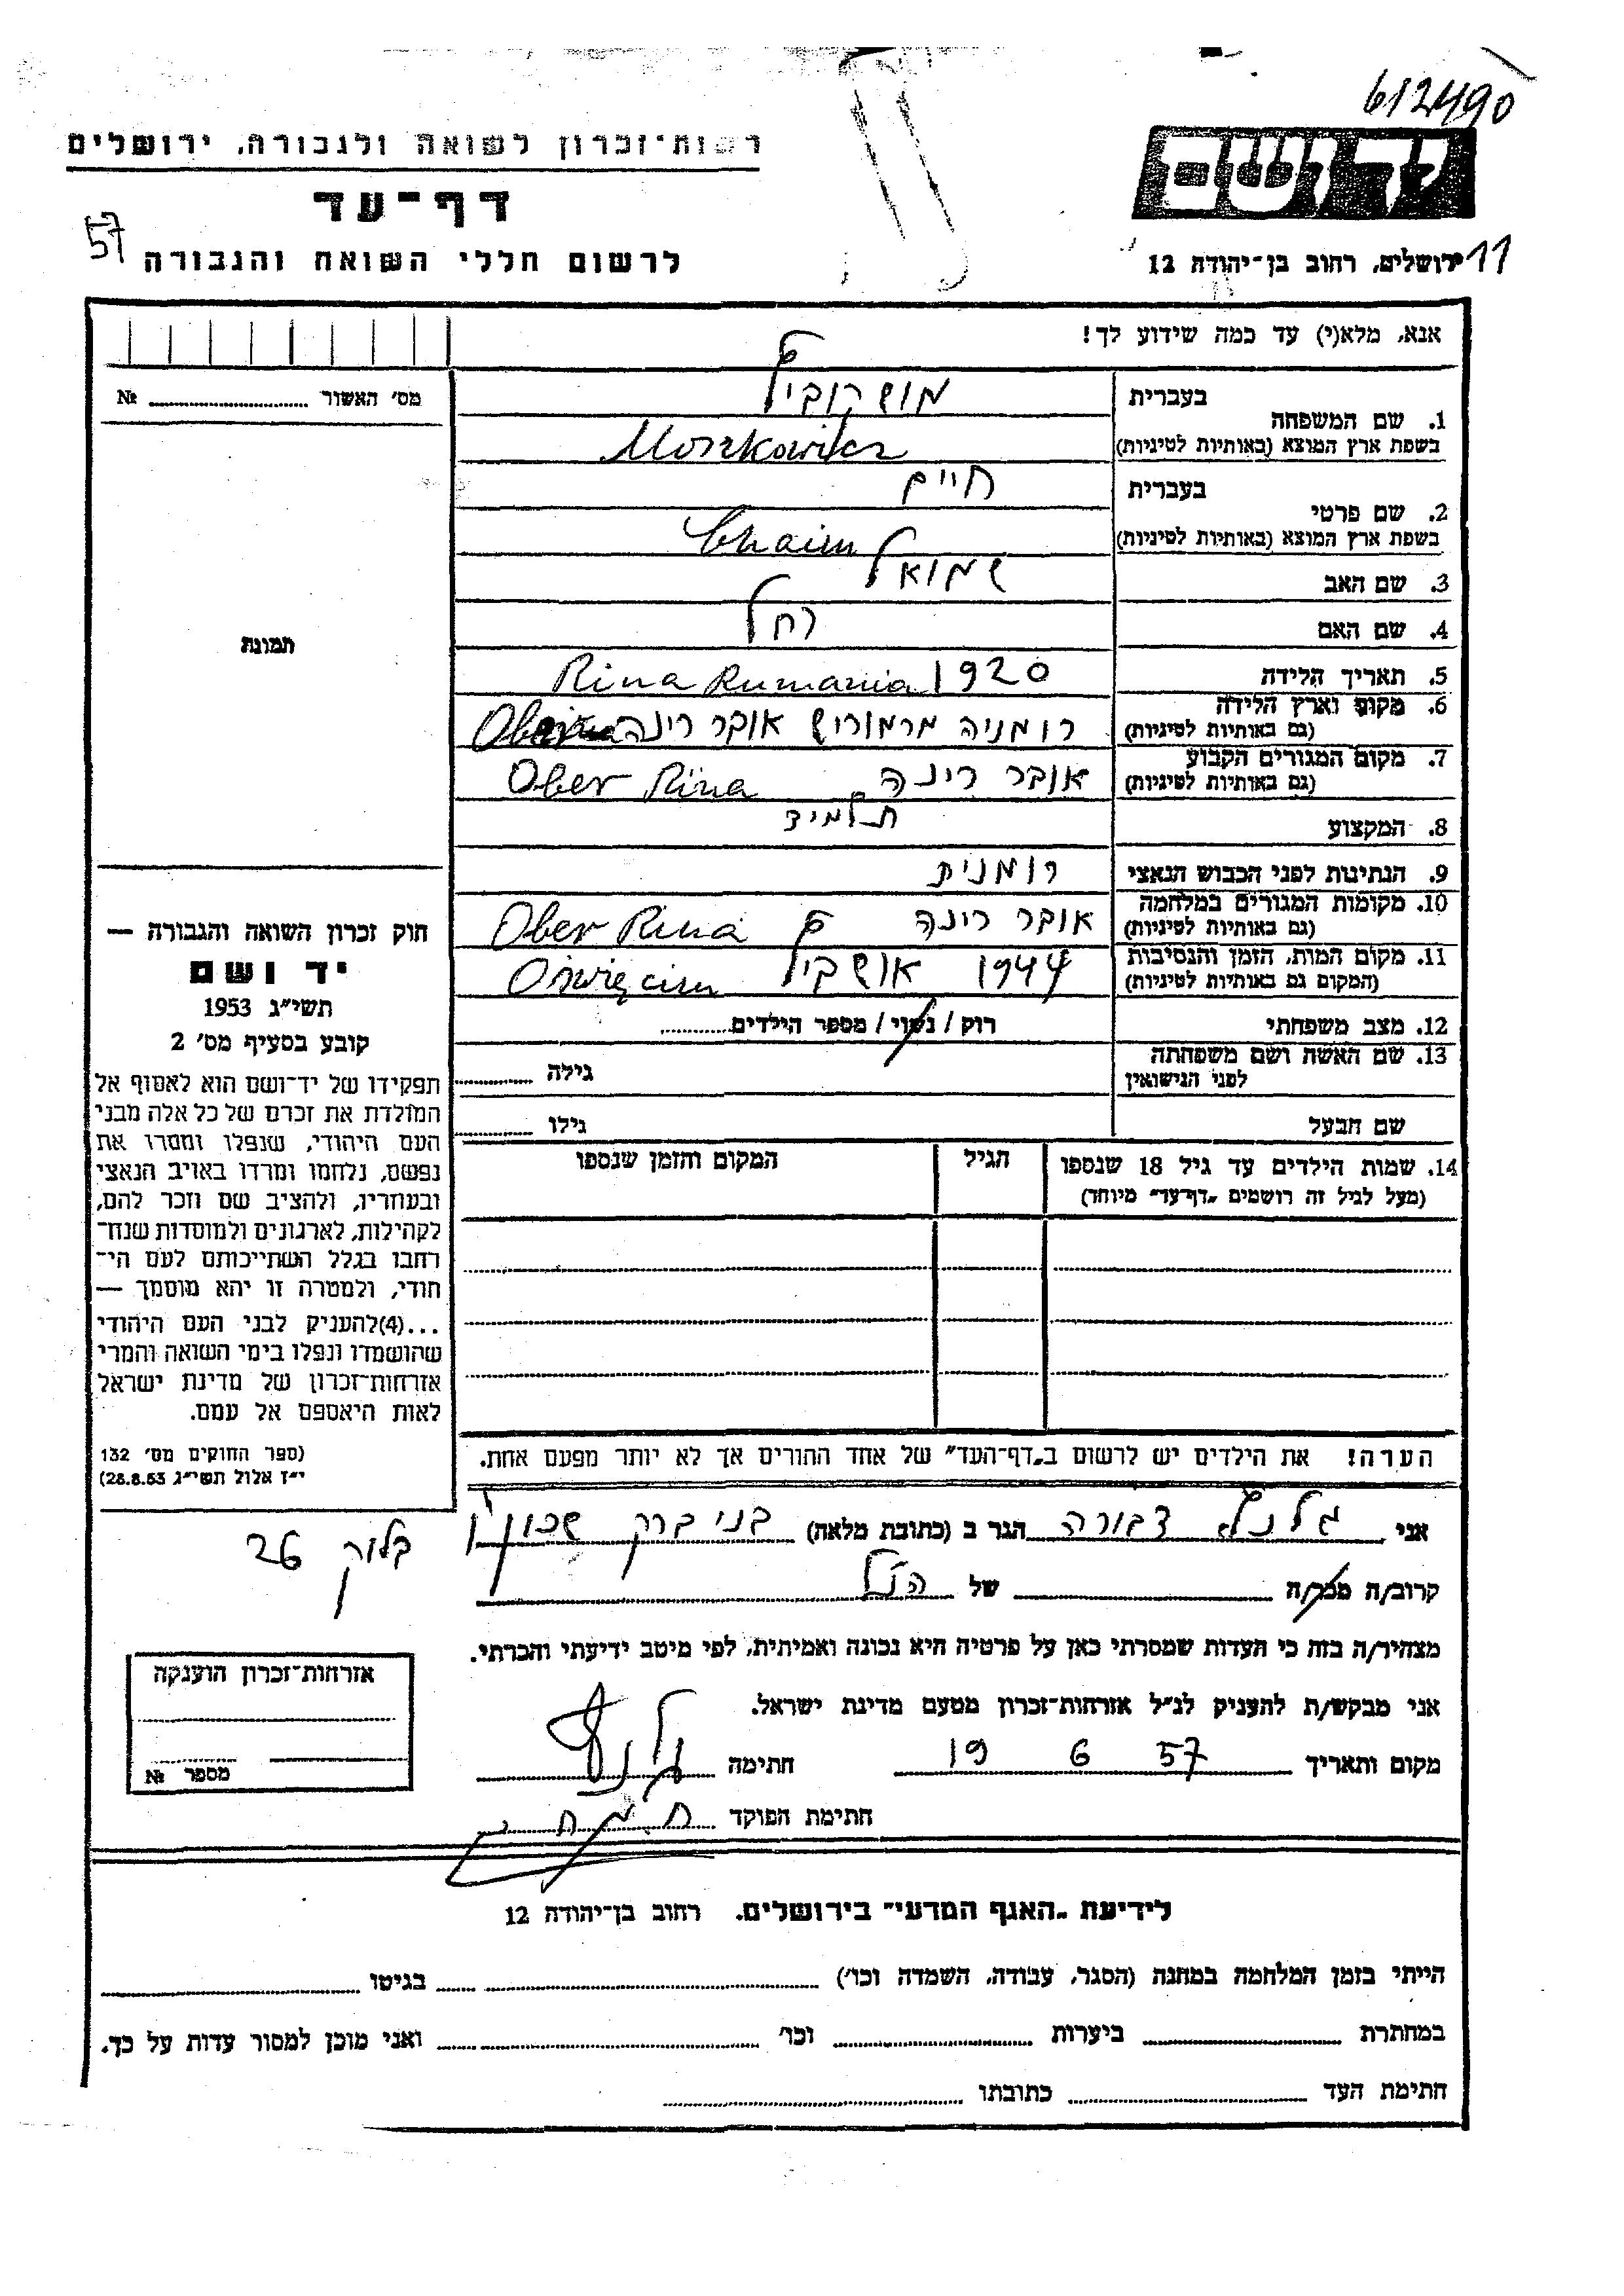 612490
רשות־זכרון לשואה ולגבורה, ירושלים
יד ושם
דף־עד
57
לרשום חללי השואה והגבורה
ירושלים, רחוב בן־יהודה 12
11
אנא, מלא(י) עד כמה שידוע לך!
מס׳ האשור № 
1. שם המשפחה
בעברית מושקוביץ
בשפת ארץ המוצא (באותיות לטיניות) Moszkowicz
2. שם פרטי
בעברית חיים
בשפת ארץ המוצא (באותיות לטיניות) Chaim
3. שם האב שמואל
4. שם האם רחל
תמונה
5. תאריך הלידה 1920 Rina Rumania
6. מקום וארץ הלידה רומניה מרמורוש אובר רינה
(גם באותיות לטיניות)
7. מקום המגורים הקבוע אובר רינה Ober Rina
(גם באותיות לטיניות)
8. המקצוע תלמיד
9. הנתינות לפני הכבוש הנאצי רומנית
10. מקומות המגורים במלחמה אובר רינה Ober Rina
(גם באותיות לטיניות)
11. מקום המות, הזמן והנסיבות 1944 אושביץ Oświęcim
(המקום גם באותיות לטיניות)
12. מצב משפחתי רוק / נשוי / מספר הילדים
13. שם האשה ושם משפחתה גילה
לפני הנישואין
שם הבעל גילו
14. שמות הילדים עד גיל 18 שנספו הגיל המקום והזמן שנספו
(מעל לגיל זה רושמים „דף־עד״ מיוחד)
הערה! את הילדים יש לרשום ב„דף־העד״ של אחד ההורים אך לא יותר מפעם אחת.
חוק זכרון השואה והגבורה —
יד ושם
תשי״ג 1953
קובע בסעיף מס׳ 2
תפקידו של יד־ושם הוא לאסוף אל
המולדת את זכרם של כל אלה מבני
העם היהודי, שנפלו ומסרו את
נפשם, נלחמו ומרדו באויב הנאצי
ובעוזריו, ולהציב שם וזכר להם,
לקהילות, לארגונים ולמוסדות שנח־
רחבו בגלל השתייכותם לעם הי־
הודי, ולמטרה זו יהא מוסמך —
...(4)להעניק לבני העם היהודי
שהושמדו ונפלו בימי השואה והמרי
אזרחות־זכרון של מדינת ישראל
לאות היאספם אל עמם.
(ספר החוקים מס׳ 132
י״ז אלול תשי״ג 28.8.53)
אני דבורה הגר ב (כתובת מלאה) בני ברק שכון
בלוק 26
קרוב/ה מכר/ה של הנ״ל
מצהיר/ה בזה כי העדות שמסרתי כאן על פרטיה היא נכונה ואמיתית, לפי מיטב ידיעתי והכרתי.
אני מבקש/ת להעניק לנ״ל אזרחות־זכרון מטעם מדינת ישראל.
מקום ותאריך 57 6 19 חתימה
חתימת הפוקד
אזרחות־זכרון הוענקה
מספר №
לידיעת „האגף המדעי״ בירושלים. רחוב בן־יהודה 12
הייתי בזמן המלחמה במחנה (הסגר, עבודה, השמדה וכו׳) בגיטו
במחתרת ביערות וכו׳ ואני מוכן למסור עדות על כך.
חתימת העד כתובתו